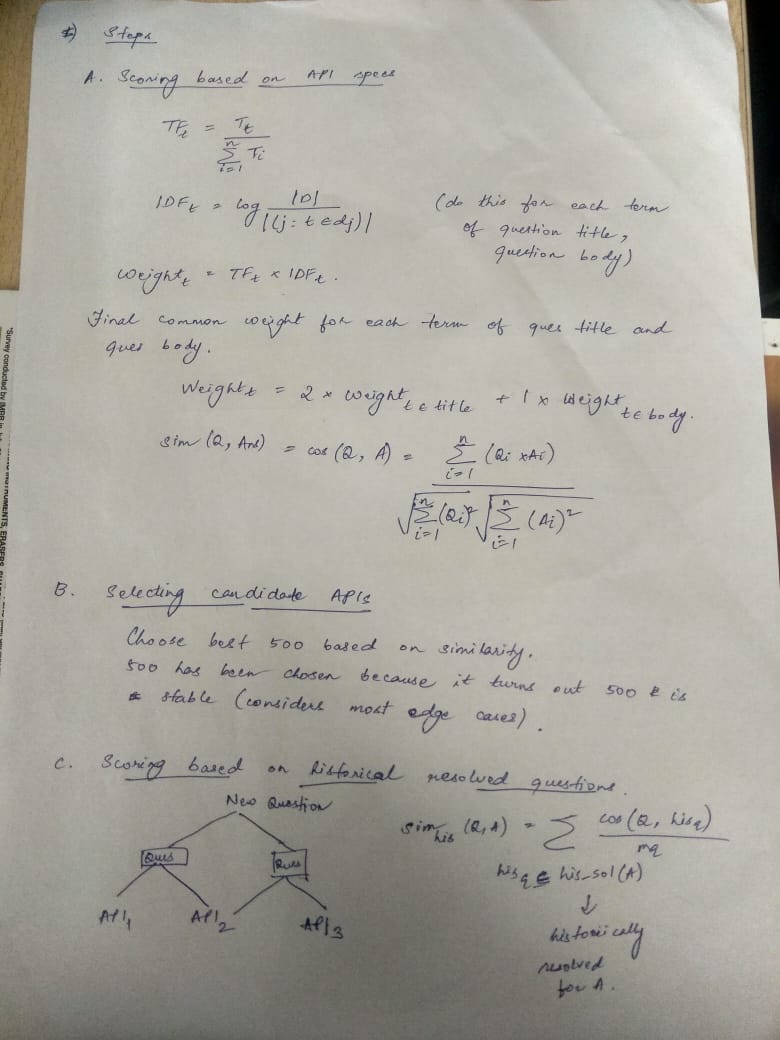 *) Steps
A. Scoring based on API specs
TF_t = T_t / Σ_{i=1}^{n} T_i
IDF_t = log |D| / |{j: t ∈ dj}|
(do this for each term
of question title,
question body)
weight_t = TF_t × IDF_t.
Final common weight for each term of ques title and
ques body.
Weight_t = 2 × weight_{t ∈ title} + 1 × weight_{t ∈ body}.
sim (Q, Ans) = cos (Q, A) = Σ_{i=1}^{n} (Qi × Ai) / √Σ_{i=1}^{n} (Qi)² √Σ_{i=1}^{n} (Ai)²
B. Selecting candidate APIs
Choose best 500 based on similarity.
500 has been chosen because it turns out 500 is
stable (considers most edge cases).
C. Scoring based on historical resolved questions.
New Question
Ques Ques
API_1 API_2 API_3
sim_his (Q, A) = Σ cos (Q, his_q) / mq
his_q ∈ his-sol (A)
↓
historically
resolved
for A.
"Survey conducted by IMRB in
INSTRUMENTS, ERASERS